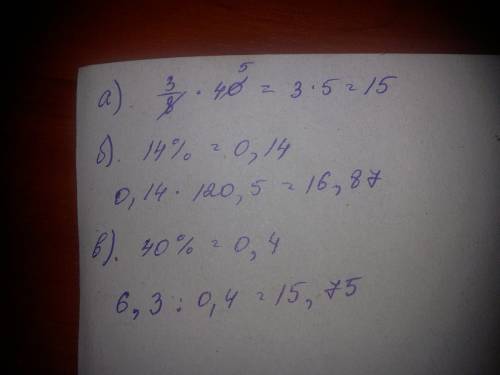 а). 3/8 · 40 5 = 3 · 5 = 15
б). 14% = 0,14
0,14 · 120,5 = 16,87
в). 40% = 0,4
6,3 : 0,4 = 15,75